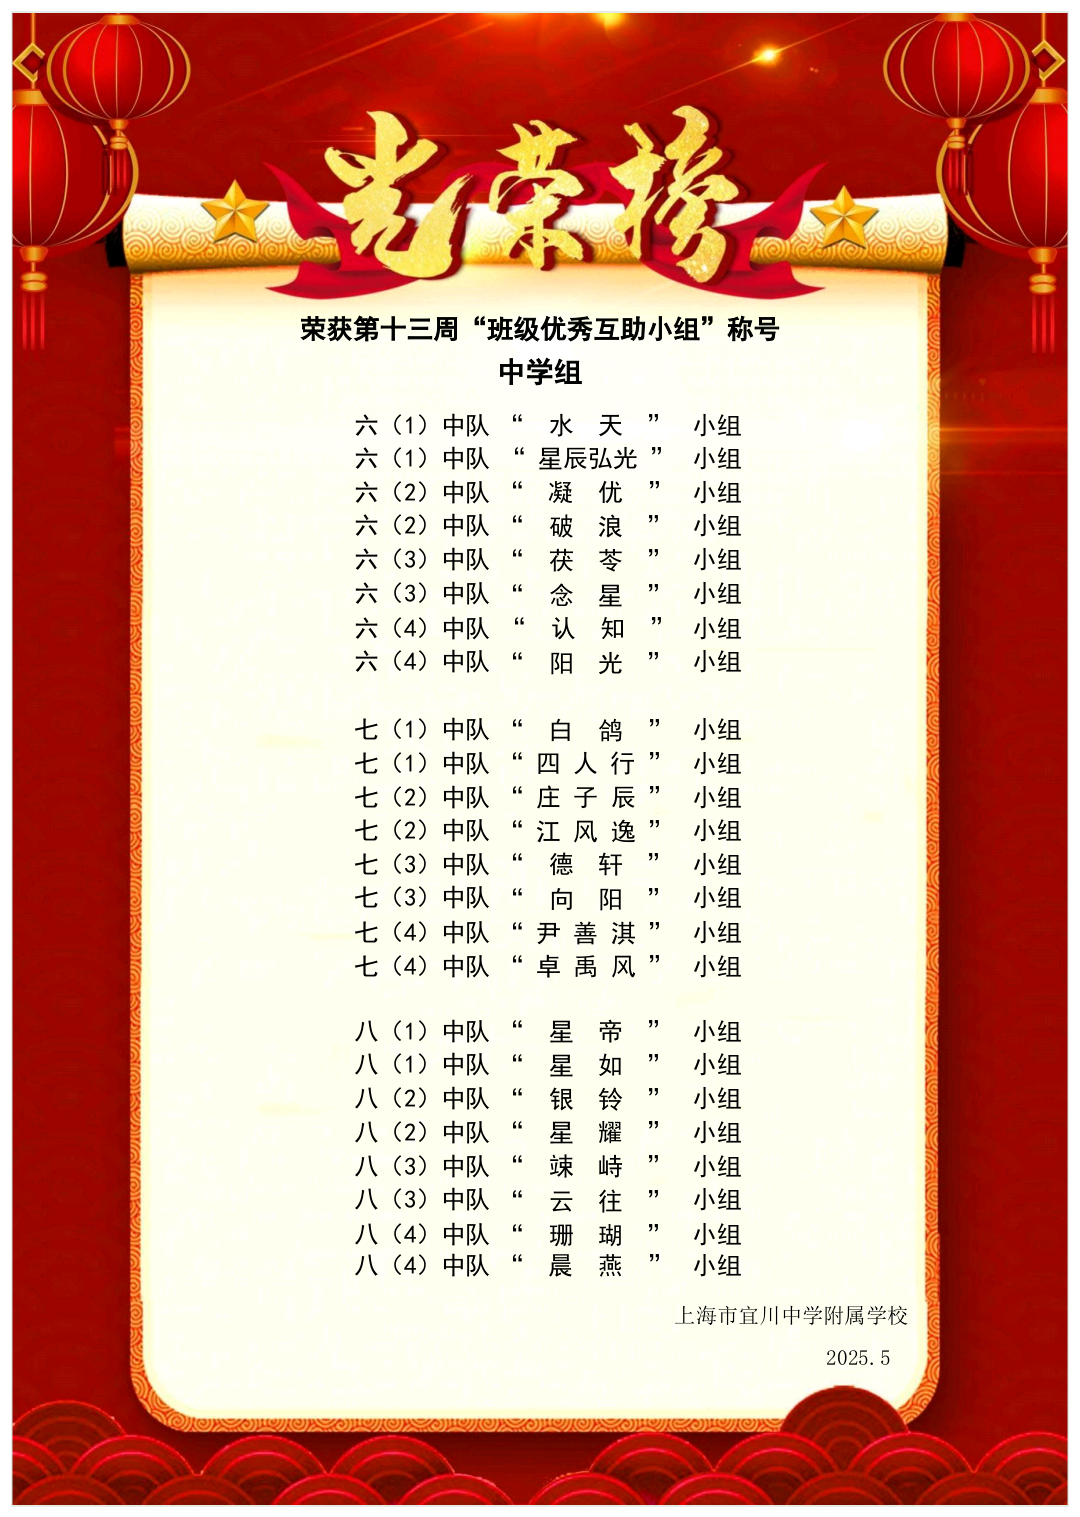 光荣榜
荣获第十三周“班级优秀互助小组”称号
中学组
六（1）中队 “ 水 天 ” 小组
六（1）中队 “ 星辰弘光 ” 小组
六（2）中队 “ 凝 优 ” 小组
六（2）中队 “ 破 浪 ” 小组
六（3）中队 “ 茯 苓 ” 小组
六（3）中队 “ 念 星 ” 小组
六（4）中队 “ 认 知 ” 小组
六（4）中队 “ 阳 光 ” 小组
七（1）中队 “ 白 鸽 ” 小组
七（1）中队 “ 四 人 行 ” 小组
七（2）中队 “ 庄 子 辰 ” 小组
七（2）中队 “ 江 风 逸 ” 小组
七（3）中队 “ 德 轩 ” 小组
七（3）中队 “ 向 阳 ” 小组
七（4）中队 “ 尹 善 淇 ” 小组
七（4）中队 “ 卓 禹 风 ” 小组
八（1）中队 “ 星 帝 ” 小组
八（1）中队 “ 星 如 ” 小组
八（2）中队 “ 银 铃 ” 小组
八（2）中队 “ 星 耀 ” 小组
八（3）中队 “ 竦 峙 ” 小组
八（3）中队 “ 云 往 ” 小组
八（4）中队 “ 珊 瑚 ” 小组
八（4）中队 “ 晨 燕 ” 小组
上海市宜川中学附属学校
2025.5